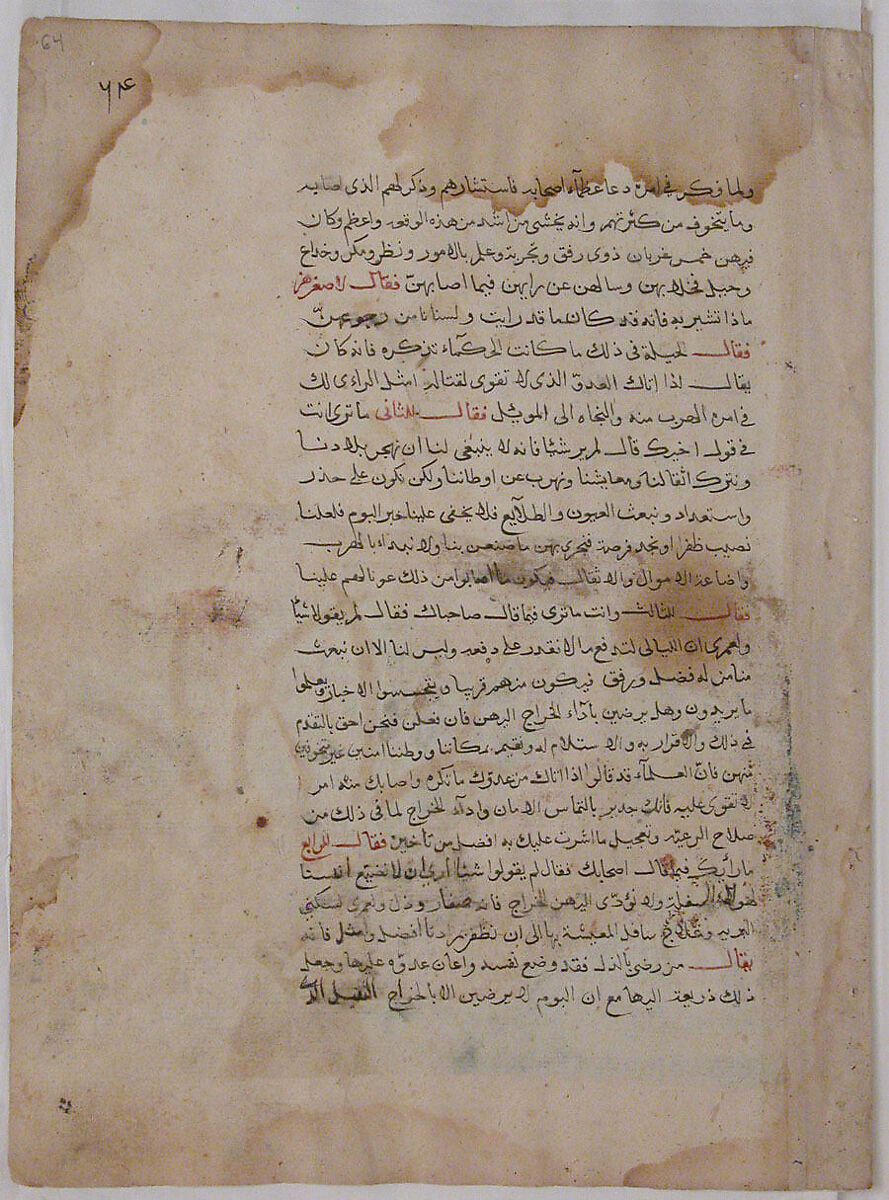 64
٦٤
ولما فكر في امره دعا عظمآء اصحابه فاستشارهم وذكر لهم الذى اصابه
وما يتخوف من كثرتهم وانه يخشى من اشد من هذه الوقعه واعظم وكان
فيهن خمس غربان ذوى رفق وتجربة وعلم بالامور ونظر ومكر وخداع
وحيل فخلا بهن وسالهن عن رايهن فيما اصابهن فقال لاصغرهن
ماذا تشير به فانه قد كان ما قد رايت ولسنا نامن رجوعهن
فقال الحيلة فى ذلك ما كانت الحكمآء تذكره فانه كان
يقال اذا اتاك العدو الذى لا تقوى لقتاله امثل الراءى لك
فى امره الهرب منه والنجاه الى الموئل فقال للثانى ما ترى انت
فى قول اخيك قال لم ير شيئا فانه لا ينبغى لنا ان نهجر بلادنا
ونترك اثقالنا ومعايشنا ونهرب عن اوطاننا ولكن نكون على حذر
واستعداد ونبعث العيون والطلايع فلا يخفى علينا خبر البوم فلعلنا
نصيب ظفرا او نجد فرصة فنجزى بهن ما صنعن بنا ولا نبداء بالهرب
واضاعة الاموال والاثقال فيكون ما اصابوا من ذلك عونا لهم علينا
فقال للثالث وانت ما ترى فيما قال صاحباك فقال لم يقولا شيئا
ولعمرى ان الليالى لتدفع ما لا نقدر على دفعه وليس لنا الا ان نبعث
منا من له فضل ورفق فيكون منهم قريبا ويتجسسوا الاخبار ويعلموا
ما يريدون وهل يرضين بآداء الخراج اليهن فان فعلن فنحن احق بالتقدم
فى ذلك والاقرار به والاستلام له ونقيم بمكاننا ووطننا امنين غير متخوفين
منهن فان العلمآء قد قالوا اذا اتاك من عدوك ما تكره واصابك منه امر
لا تقوى عليه فانك جدير بالتماس الامان وادآء الخراج لما فى ذلك من
صلاح الرعيه وتعجيل ما اشرت عليك به افضل من تاخير فقال للرابع
ما رأيك فيما قال اصحابك فقال لم يقولوا شيئا ارى ان لا نضيع أنفسنا
لهولاء السفلة ولا نؤدى اليهن الخراج فانه صغار وذل ولعمرى لسكنى
البريه سافل المعيشة بها الى ان نظفر بمرادنا افضل وامثل فانه
يقال من رضى بالذل فقد وضع نفسه واعان عدوه عليها وجعل
ذلك ذريعة اليها مع ان البوم لا يرضين الا بالخراج الثقيل الذى